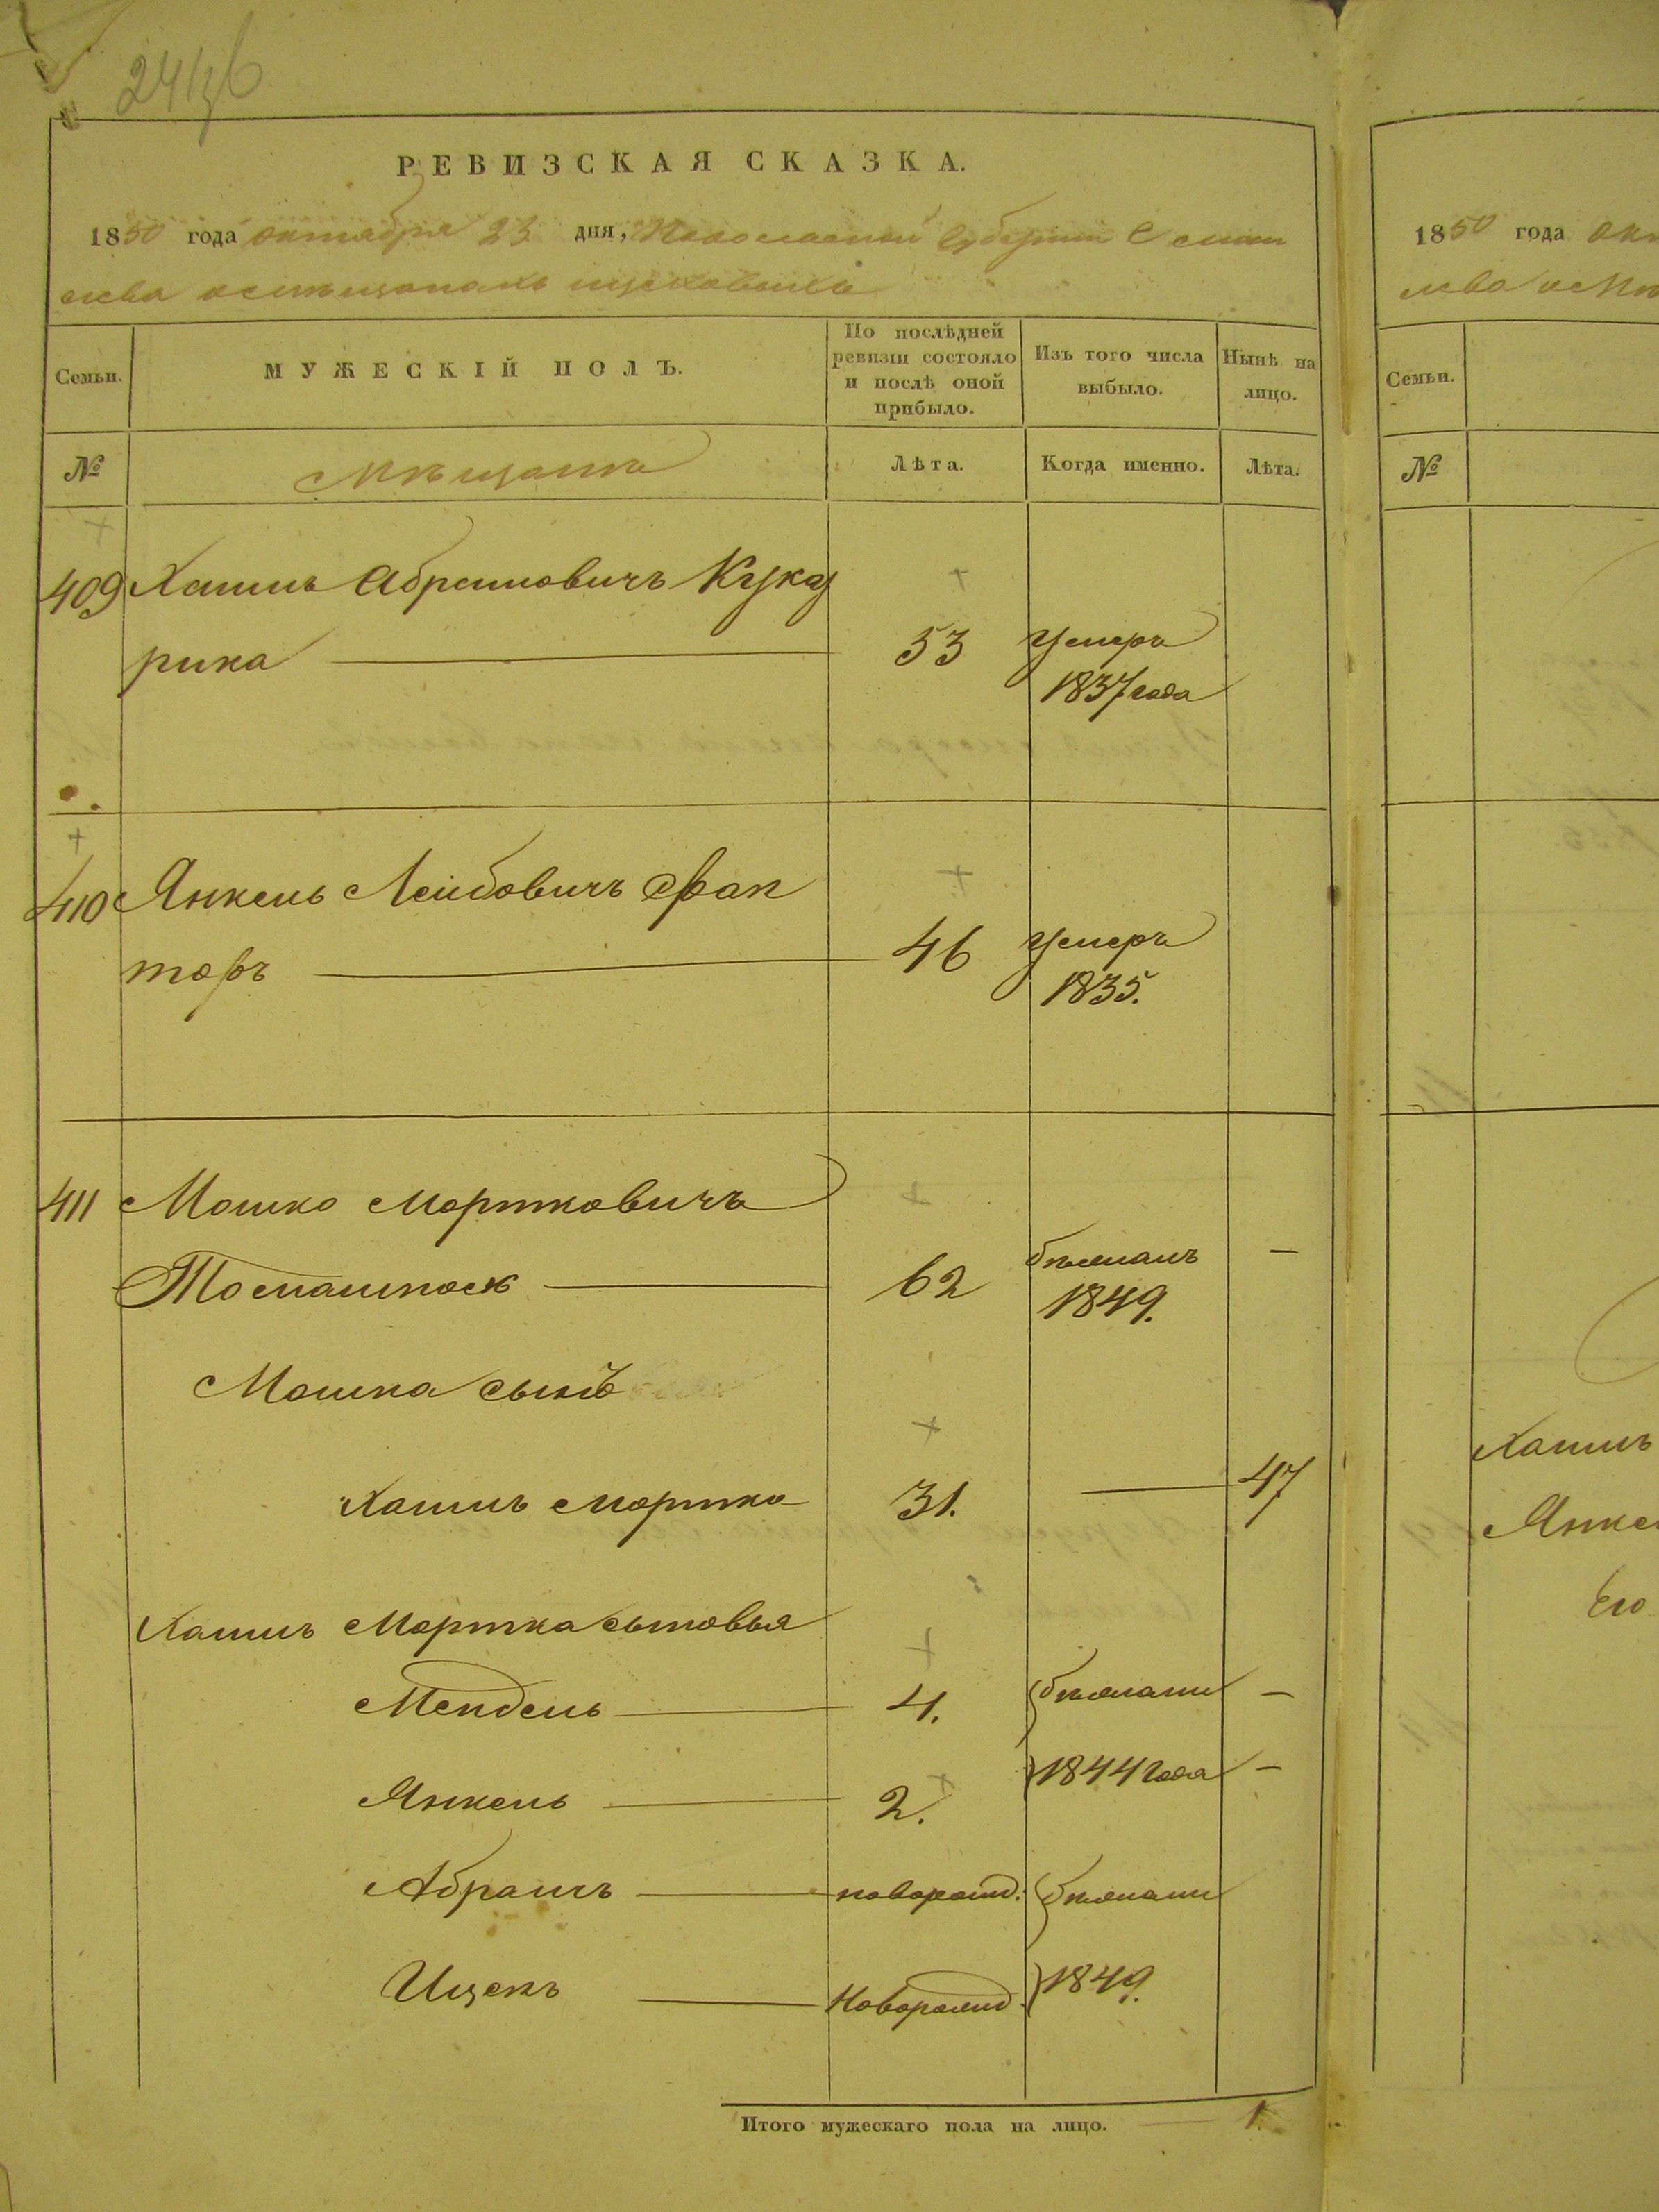 РЕВИЗСКАЯ СКАЗКА.
1850 года октября 23 дня, губернии
о мѣщанахъ
Семьи.
МУЖЕСКІЙ ПОЛЪ.
По послѣдней
ревизіи состояло
и послѣ оной
прибыло.
Изъ того числа
выбыло.
Нынѣ на
лицо.
№
Мѣщане
Лѣта.
Когда именно.
Лѣта.
409 Хаимъ Абрамовичъ Куку
рика 53 умеръ
1837 года
410 Янкель Лейбовичъ Фак
торъ 46 умеръ
1835.
411 Мошко Мортковичъ
62 бѣжалъ —
1849.
Мошка сынъ
Хаимъ Мортко 31. — 47
Хаимъ Мортка сыновья
Мендель 4. бѣжали —
Янкель 2. 1844 года —
Абрамъ новорожд. бѣжали
Ицекъ новорожд. 1849.
Итого мужескаго пола на лицо. 1.
1850 года
Семьи.
№
Хаимъ
Его